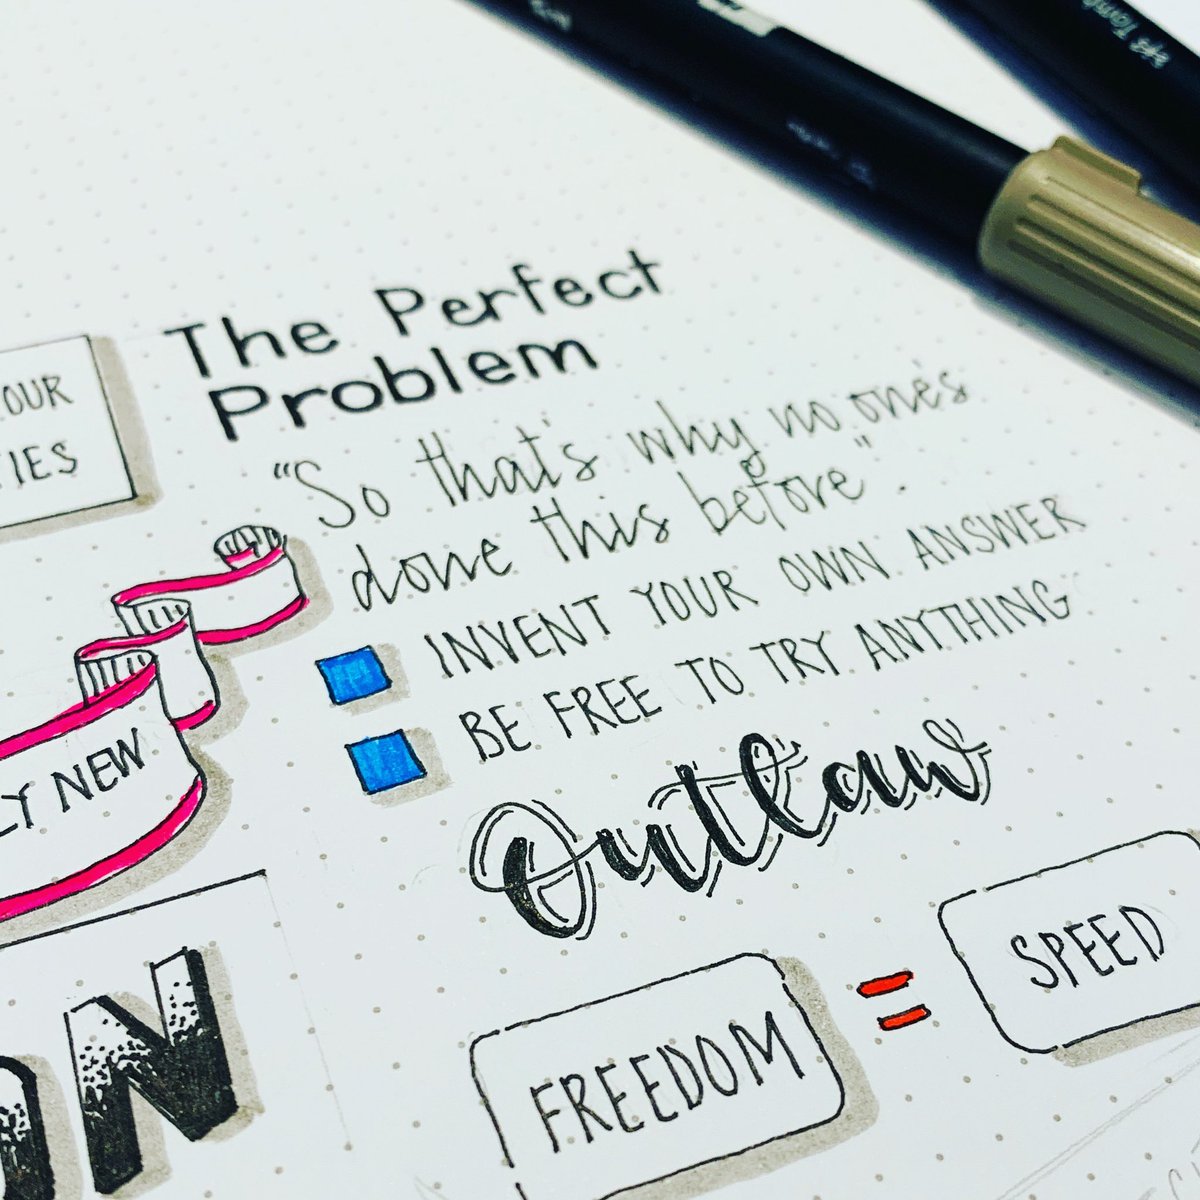 The Perfect
Problem
"So that's why no one's
done this before".
INVENT YOUR OWN ANSWER
BE FREE TO TRY ANYTHING
Outlaw
FREEDOM = SPEED
OUR
TIES
LY NEW
ON